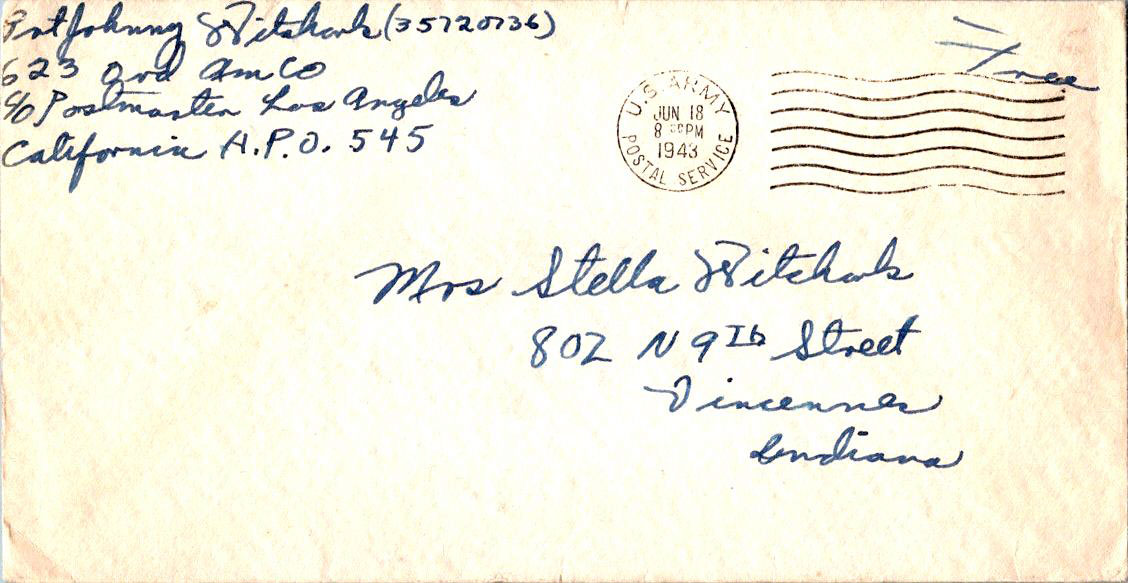 Pvt Johnny Witshork (35720736)
Free
623 Ord Am Co
c/o Postmaster Los Angeles
California A.P.O. 545
U.S. ARMY
JUN 18
8 PM
1943
POSTAL SERVICE
Mrs Stella Witshork
802 N 9Th Street
Vincennes
Indiana